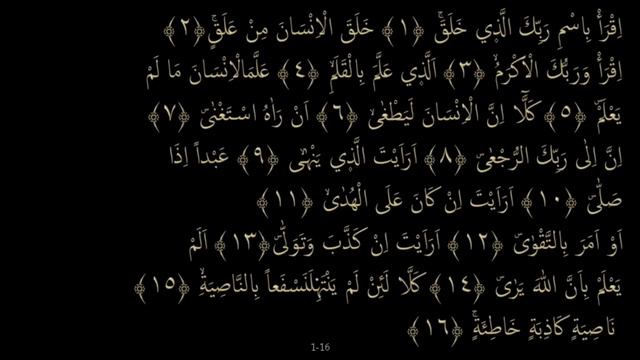 اِقْرَأْ بِاسْمِ رَبِّكَ الَّذِي خَلَقَۚ ﴿١﴾ خَلَقَ الْاِنْسَانَ مِنْ عَلَقٍۚ ﴿٢﴾
اِقْرَأْ وَرَبُّكَ الْاَكْرَمُۙ ﴿٣﴾ اَلَّذِي عَلَّمَ بِالْقَلَمِۙ ﴿٤﴾ عَلَّمَالْاِنْسَانَ مَا لَمْ
يَعْلَمْۜ ﴿٥﴾ كَلَّٓا اِنَّ الْاِنْسَانَ لَيَطْغٰىۙ ﴿٦﴾ اَنْ رَاٰهُ اسْتَغْنٰىۜ ﴿٧﴾
اِنَّ اِلٰى رَبِّكَ الرُّجْعٰىۜ ﴿٨﴾ اَرَاَيْتَ الَّذِي يَنْهٰىۙ ﴿٩﴾ عَبْداً اِذَا
صَلّٰىۜ ﴿١٠﴾ اَرَاَيْتَ اِنْ كَانَ عَلَى الْهُدٰىۙ ﴿١١﴾
اَوْ اَمَرَ بِالتَّقْوٰىۜ ﴿١٢﴾ اَرَاَيْتَ اِنْ كَذَّبَ وَتَوَلّٰىۜ ﴿١٣﴾ اَلَمْ
يَعْلَمْ بِاَنَّ اللّٰهَ يَرٰىۜ ﴿١٤﴾ كَلَّا لَئِنْ لَمْ يَنْتَهِلَنَسْفَعاً بِالنَّاصِيَةِۙ ﴿١٥﴾
نَاصِيَةٍ كَاذِبَةٍ خَاطِئَةٍۚ ﴿١٦﴾
1-16